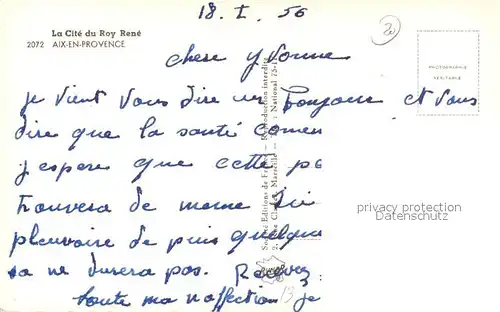 18. I. 56
La Cité du Roy René
2072 AIX-EN-PROVENCE
20
PHOTOGRAPHIE
VÉRITABLE
chere yvonne
je vient vous dire un Bonjour et vous
dire que la santé
j espere que cette
trouvera de meme
pleuvoire de puis quelque
sa ne durera pas. Recevez
toute ma n affection je
Société Editions de France - Reproduction interdite
Marseille - National 75
privacy protection
Datenschutz